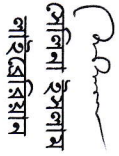 সেলিনা ইসলাম
লাইব্রেরিয়ান